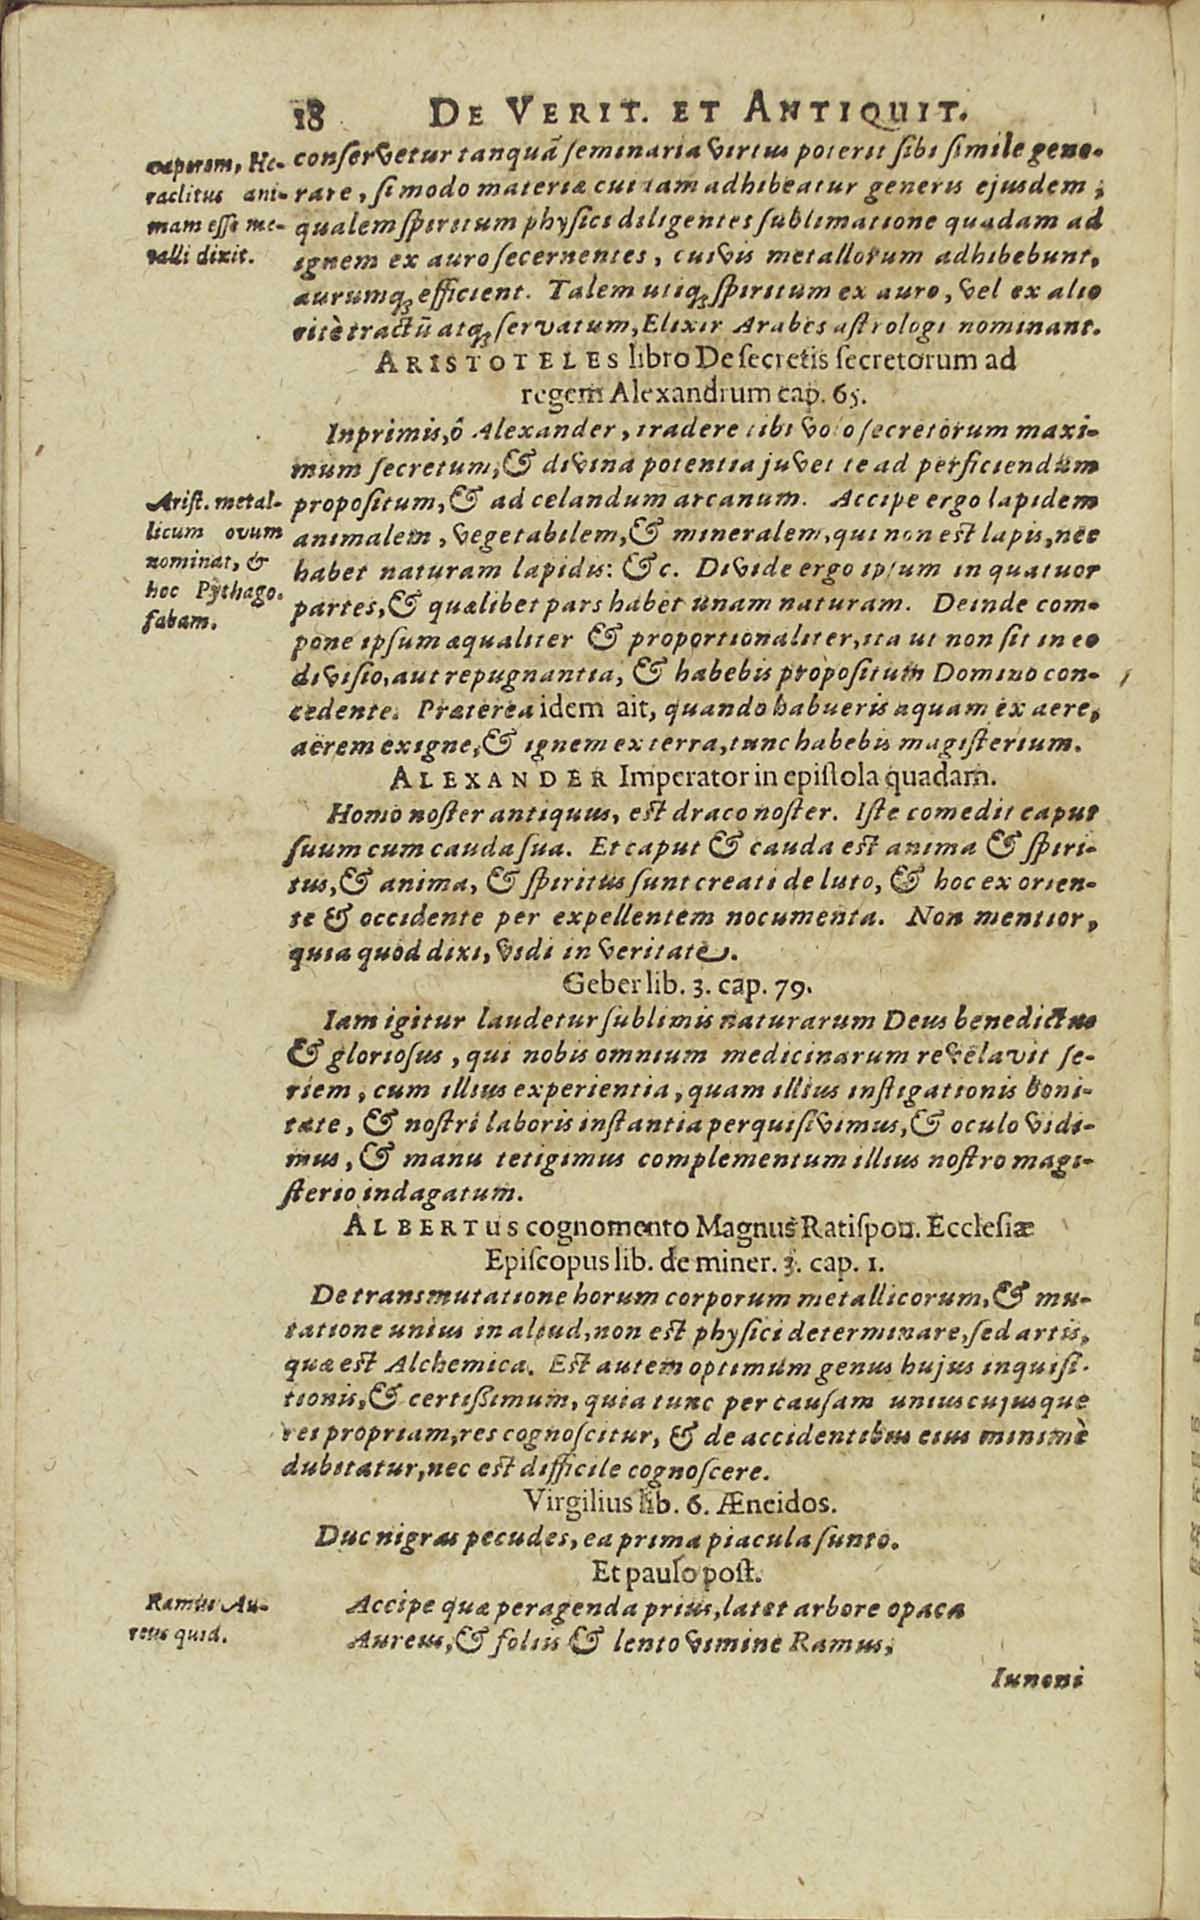 18 DE VERIT. ET ANTIQUIT.
vaporem, He-
raclitus ani-
mam esse me-
talli dixit.
conservetur tanquā seminaria virtus poterit sibi simile gene-
rare, si modo materiæ cuidam adhibeatur generis ejusdem;
qualem spiritum physici diligentes sublimatione quadam ad
ignem ex auro secernentes, cuivis metallorum adhibebunt,
aurumq; efficient. Talem utiq; spiritum ex auro, vel ex alio
ritè tractū atq; servatum, Elixir Arabes astrologi nominant.
ARISTOTELES libro De secretis secretorum ad
regem Alexandrum cap. 65.
Inprimis, ô Alexander, tradere tibi volo secretorum maxi-
mum secretum, & divina potentia juvet te ad perficiendum
propositum, & ad celandum arcanum. Accipe ergo lapidem
animalem, vegetabilem, & mineralem, qui non est lapis, nec
habet naturam lapidis: &c. Divide ergo ipsum in quatuor
partes, & quælibet pars habet unam naturam. Deinde com-
pone ipsum æqualiter & proportionaliter, ita ut non sit in eo
divisio, aut repugnantia, & habebis propositum Domino con-
cedente. Præterea idem ait, quando habueris aquam ex aere,
aërem ex igne, & ignem ex terra, tunc habebis magisterium.
Arist. metal-
licum ovum
nominat, &
hoc Pythago.
fabam.
ALEXANDER Imperator in epistola quadam.
Homo noster antiquus, est draco noster. Iste comedit caput
suum cum cauda sua. Et caput & cauda est anima & spiri-
tus, & anima, & spiritus sunt creati de luto, & hoc ex orien-
te & occidente per expellentem nocumenta. Non mentior,
quia quod dixi, vidi in veritate.
Geber lib. 3. cap. 79.
Iam igitur laudetur sublimis naturarum Deus benedictus
& gloriosus, qui nobis omnium medicinarum revelavit se-
riem, cum illius experientia, quam illius instigationis boni-
tate, & nostri laboris instantia perquisivimus, & oculo vidi-
mus, & manu tetigimus complementum illius nostro magi-
sterio indagatum.
ALBERTUS cognomento Magnus Ratispon. Ecclesiæ
Episcopus lib. de miner. 3. cap. 1.
De transmutatione horum corporum metallicorum, & mu-
tatione unius in aliud, non est physici determinare, sed artis,
quæ est Alchemica. Est autem optimum genus hujus inquisi-
tionis, & certissimum, quia tunc per causam uniuscujusque
rei propriam, res cognoscitur, & de accidentibus eius minimè
dubitatur, nec est difficile cognoscere.
Virgilius lib. 6. Æneidos.
Duc nigras pecudes, ea prima piacula sunto.
Et paulo post.
Ramus Au-
reus quid.
Accipe quæ peragenda prius, latet arbore opaca
Aureus, & foliis & lento vimine Ramus,
Iunoni